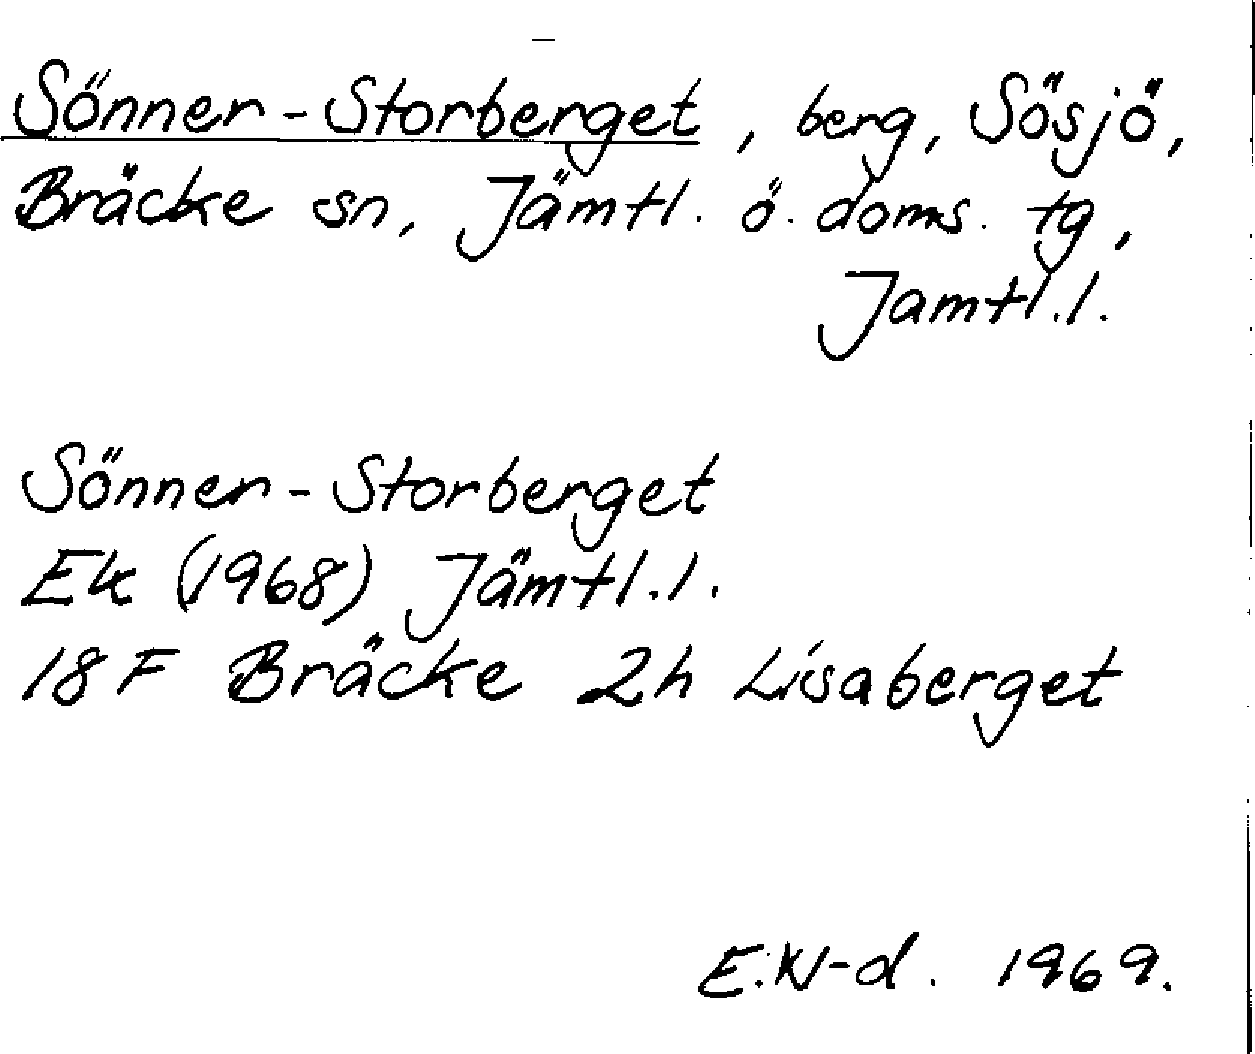 Sönner-Storberget, berg, Sösjö,
Bräcke sn, Jämtl. ö. doms. tg,
Jamtl.l.
Sönner-Storberget
Ek (1968) Jämtl.l.
18 F Bräcke 2h Lisaberget
E.W-d. 1969.